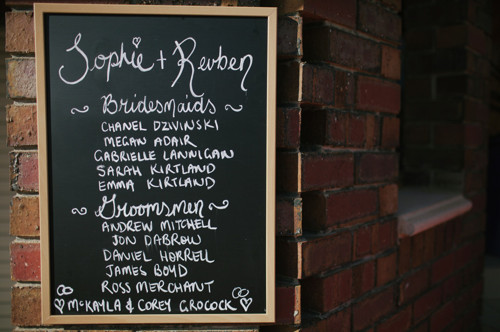 Sophie + Reuben
~ Bridesmaids ~
CHANEL DZIVINSKI
MEGAN ADAIR
GABRIELLE LANNIGAN
SARAH KIRTLAND
EMMA KIRTLAND
~ Groomsmen ~
ANDREW MITCHELL
JON DABROW
DANIEL HORRELL
JAMES BOYD
ROSS MERCHANT
♡ MCKAYLA & COREY GROCOCK ♡